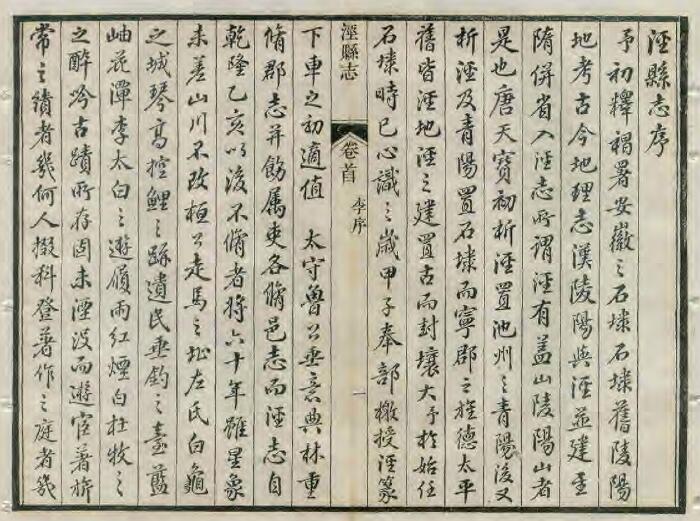 涇縣志序
予初釋褐署安徽之石埭石埭舊陵陽
地考古今地理志漢陵陽與涇並建至
隋併省入涇志所謂涇有蓋山陵陽山者
是也唐天寶初析涇置池州之青陽後又
析涇及青陽置石埭而寧郡之旌德太平
舊皆涇地涇之建置古而封壤大予於始任
石埭時已心識之歲甲子奉部檄授涇篆
涇縣志 卷首 李序 一
下車之初適值 太守魯公垂意典林重
脩郡志并飭属吏各脩邑志而涇志自
乾隆乙亥以後不脩者將六十年雖星象
未差山川不改桓公走馬之址左氏白龜
之城琴高控鯉之跡遺民垂釣之臺藍
岫花潭李太白之遊屐雨紅煙白杜牧之
之醉吟古蹟所存固未湮没而遊宦著旂
常之蹟者幾何人掇科登著作之庭者幾